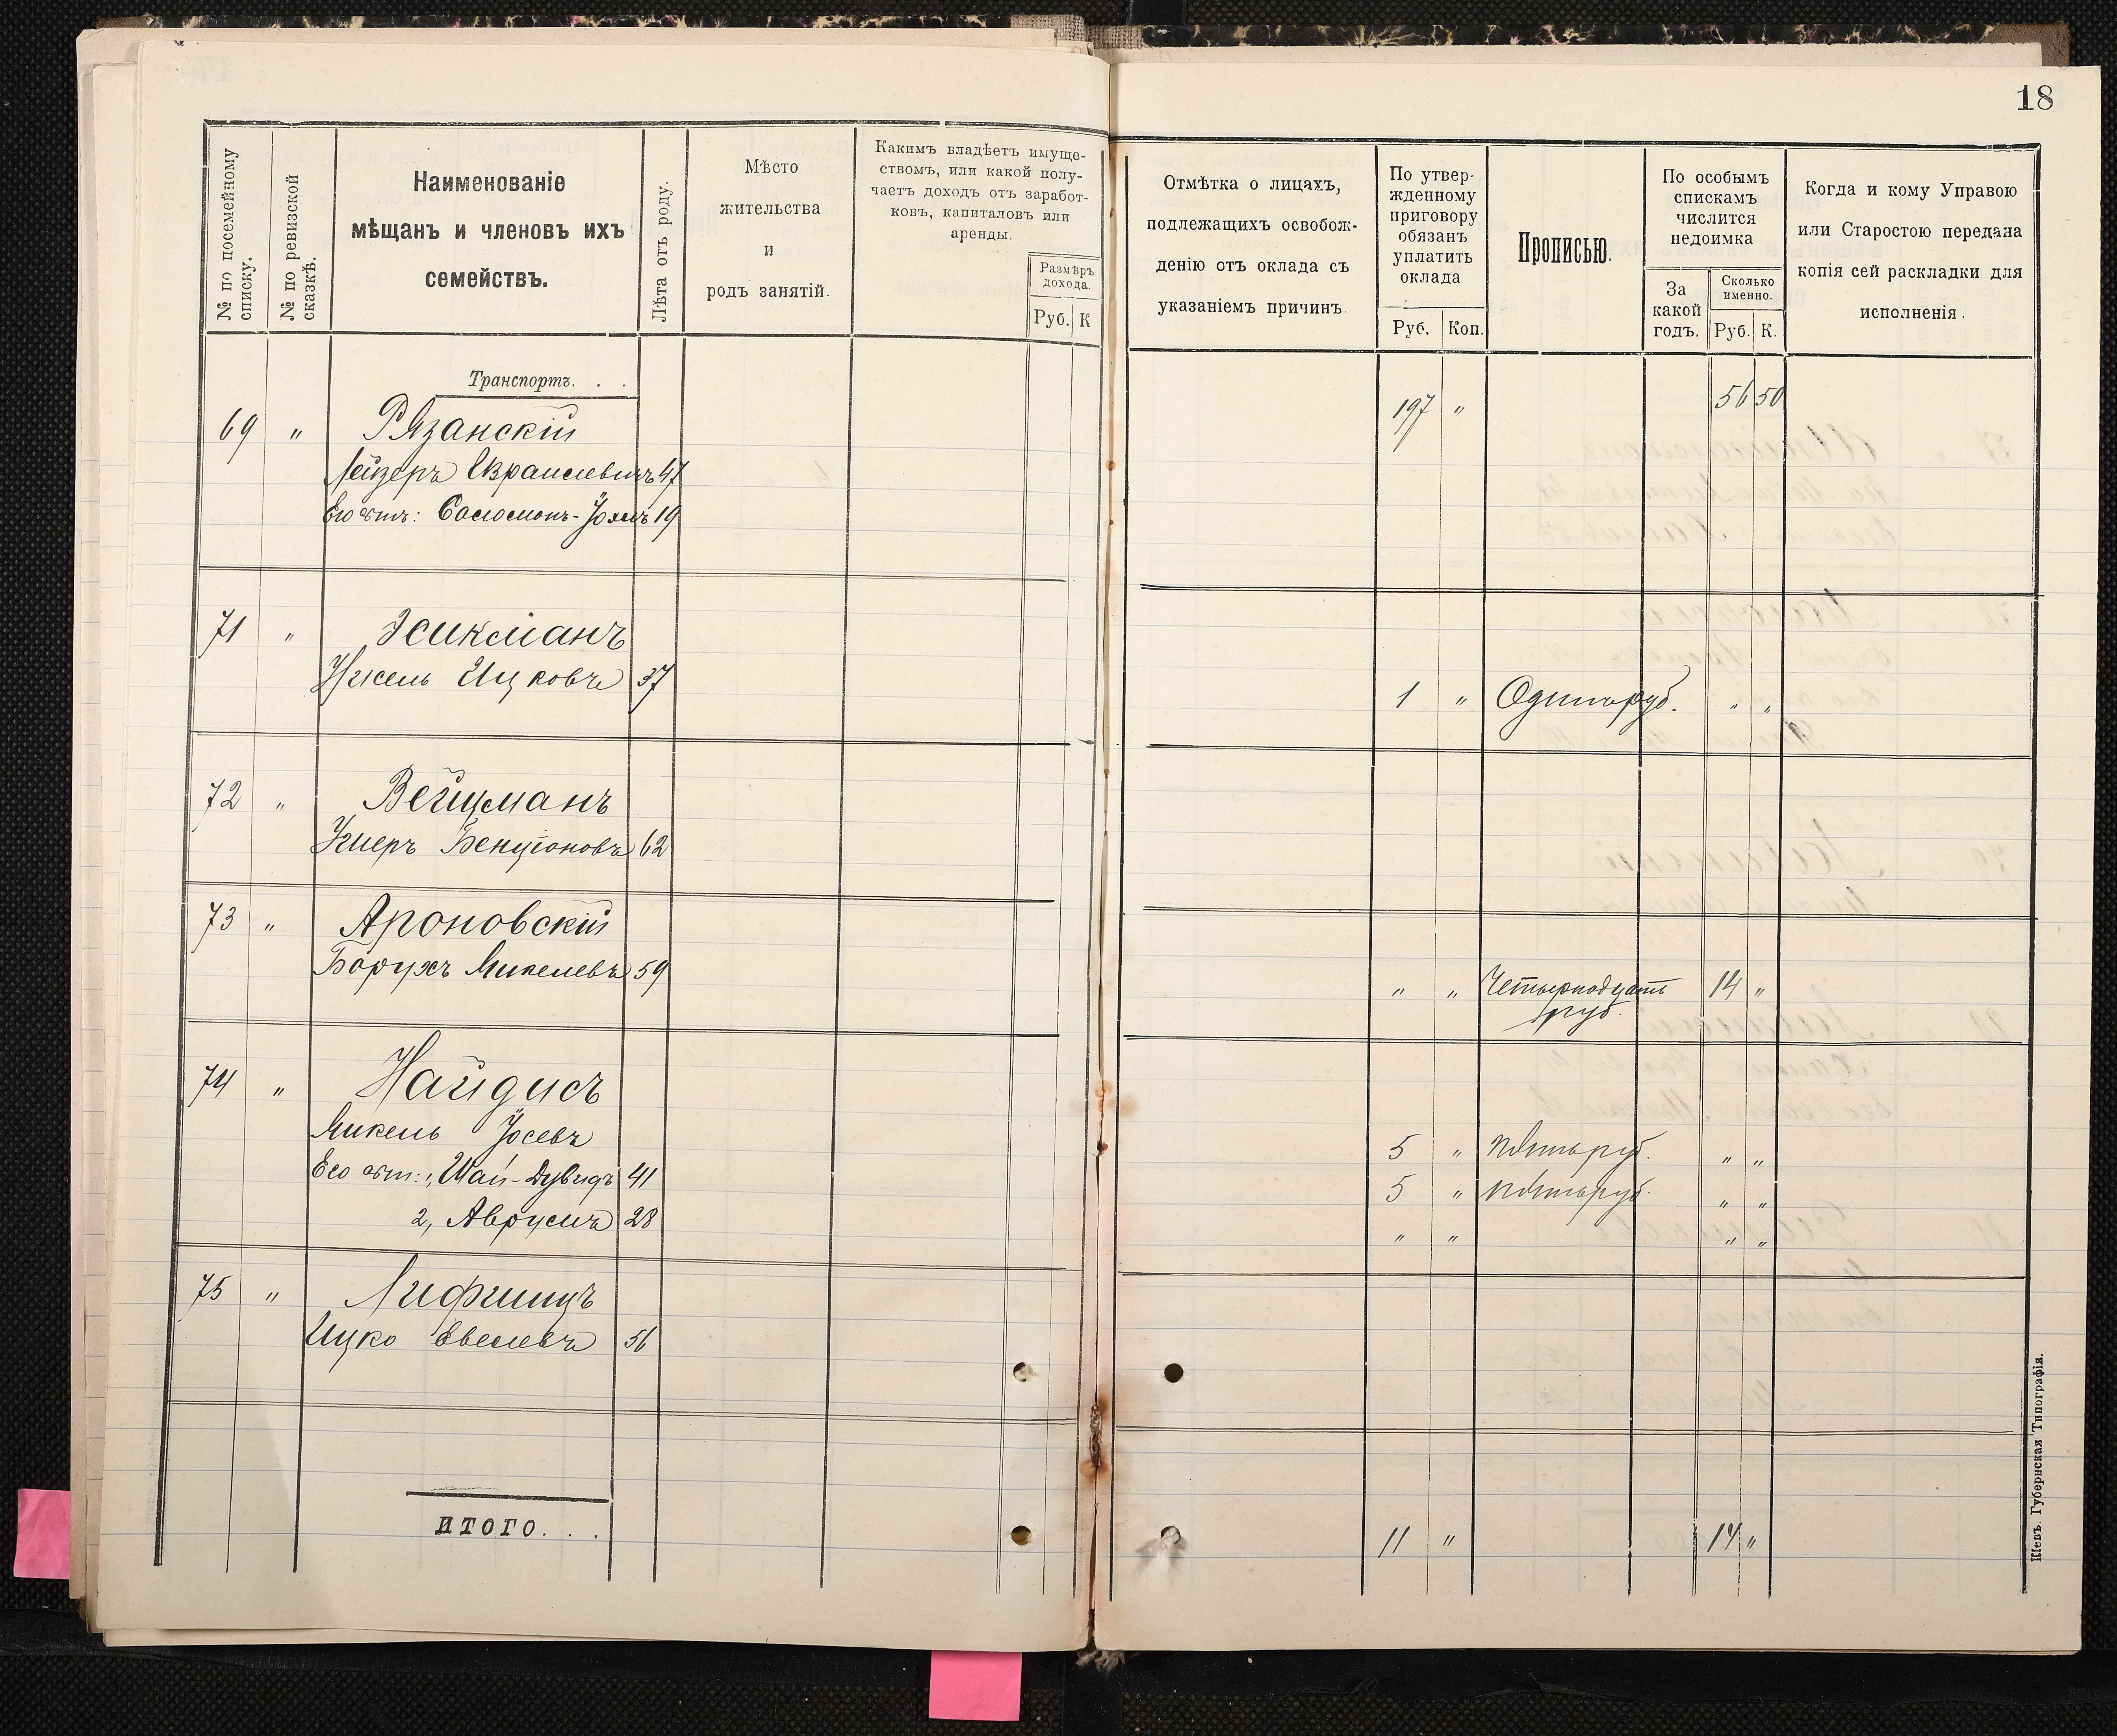 18
№ по посемейному списку.
№ по ревизской сказкѣ.
Наименованіе
мѣщанъ и членовъ ихъ
семействъ.
Лѣта отъ роду.
Мѣсто
жительства
и
родъ занятій.
Какимъ владѣетъ имуще-
ствомъ, или какой полу-
чаетъ доходъ отъ заработ-
ковъ, капиталовъ или
аренды.
Размѣръ
дохода.
Руб. К
Отмѣтка о лицахъ,
подлежащихъ освобож-
денію отъ оклада съ
указаніемъ причинъ.
По утвер-
жденному
приговору
обязанъ
уплатить
оклада
Руб. Коп.
Прописью.
По особымъ
спискамъ
числится
недоимка
За
какой
годъ.
Сколько
именно.
Руб. К.
Когда и кому Управою
или Старостою передана
копія сей раскладки для
исполненія.
Транспортъ. . .
197 " 56 50
69 " Рязанскій
Лейзеръ 47
Его сынъ: Соломонъ- 19
71 " Зикманъ
Ицковъ 37
1 " Одинъ руб. " "
72 " Вейцманъ
Бенціоновъ 62
73 " Ароновскій
Борухъ Микелевъ 59
" " Четырнадцать 14 "
руб.
74 " Найдисъ
Микель Іосевъ
5 " пять руб. " "
Его сын: 1, Шай-Дувидъ 41
5 " пять руб. " "
2, Аврумъ 28
" " " "
75 " Лифшицъ
Ицко Евелевъ 56
ИТОГО. . .
11 " 14 "
Кіевъ. Губернская Типографія.